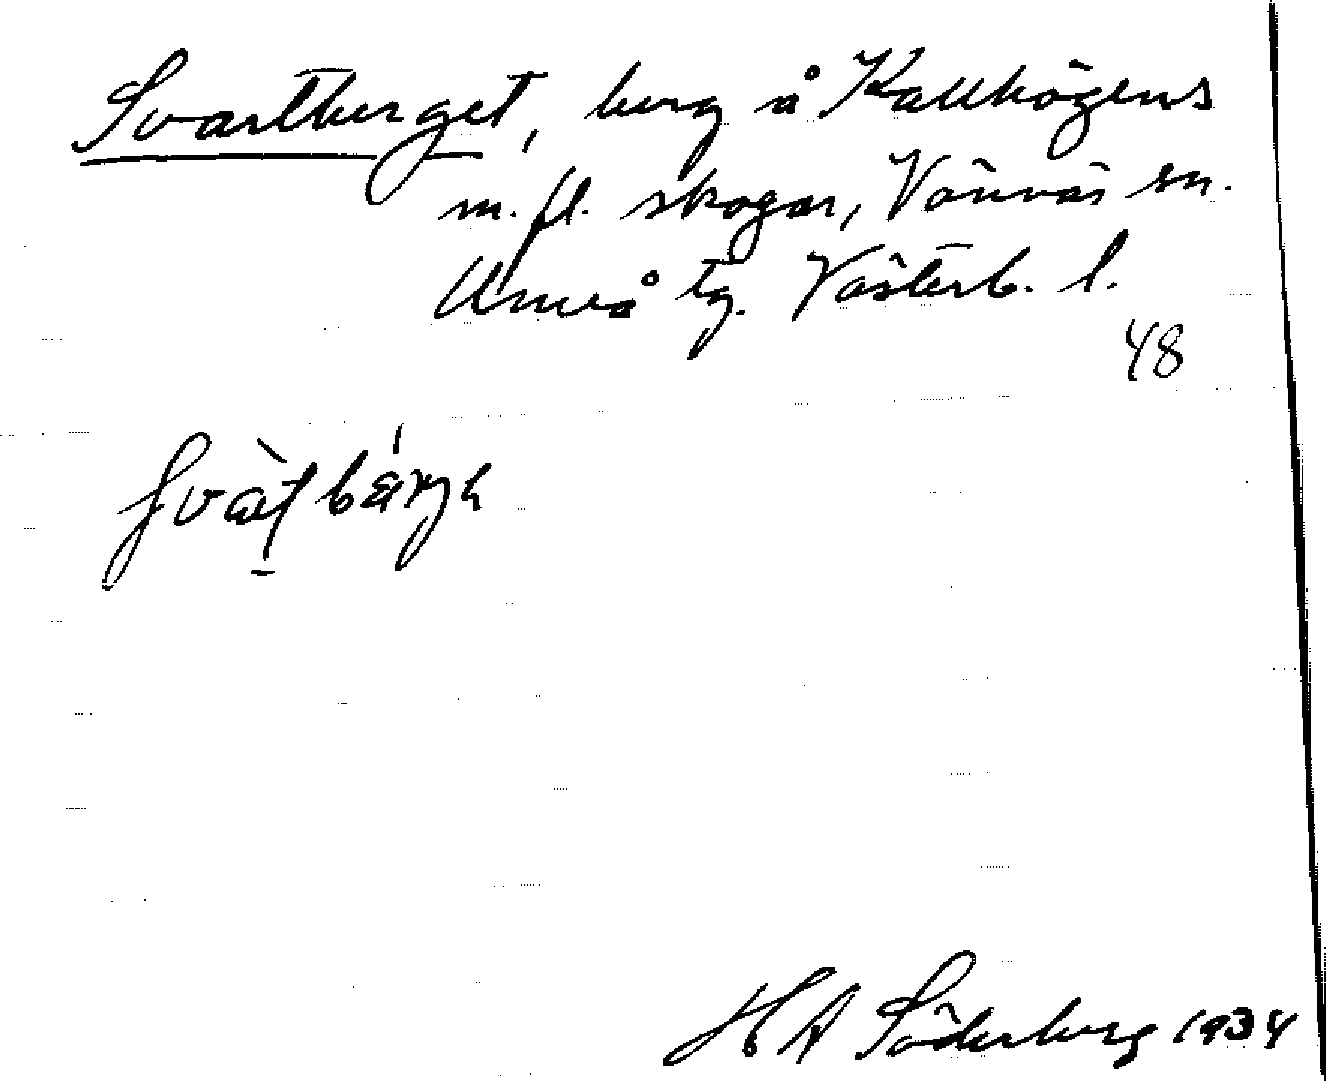 Svartberget, berg å Kallhögens
m. fl. skogar, Vännäs sn.
Umeå tg. Västerb. l.
48
H A Söderberg 1934